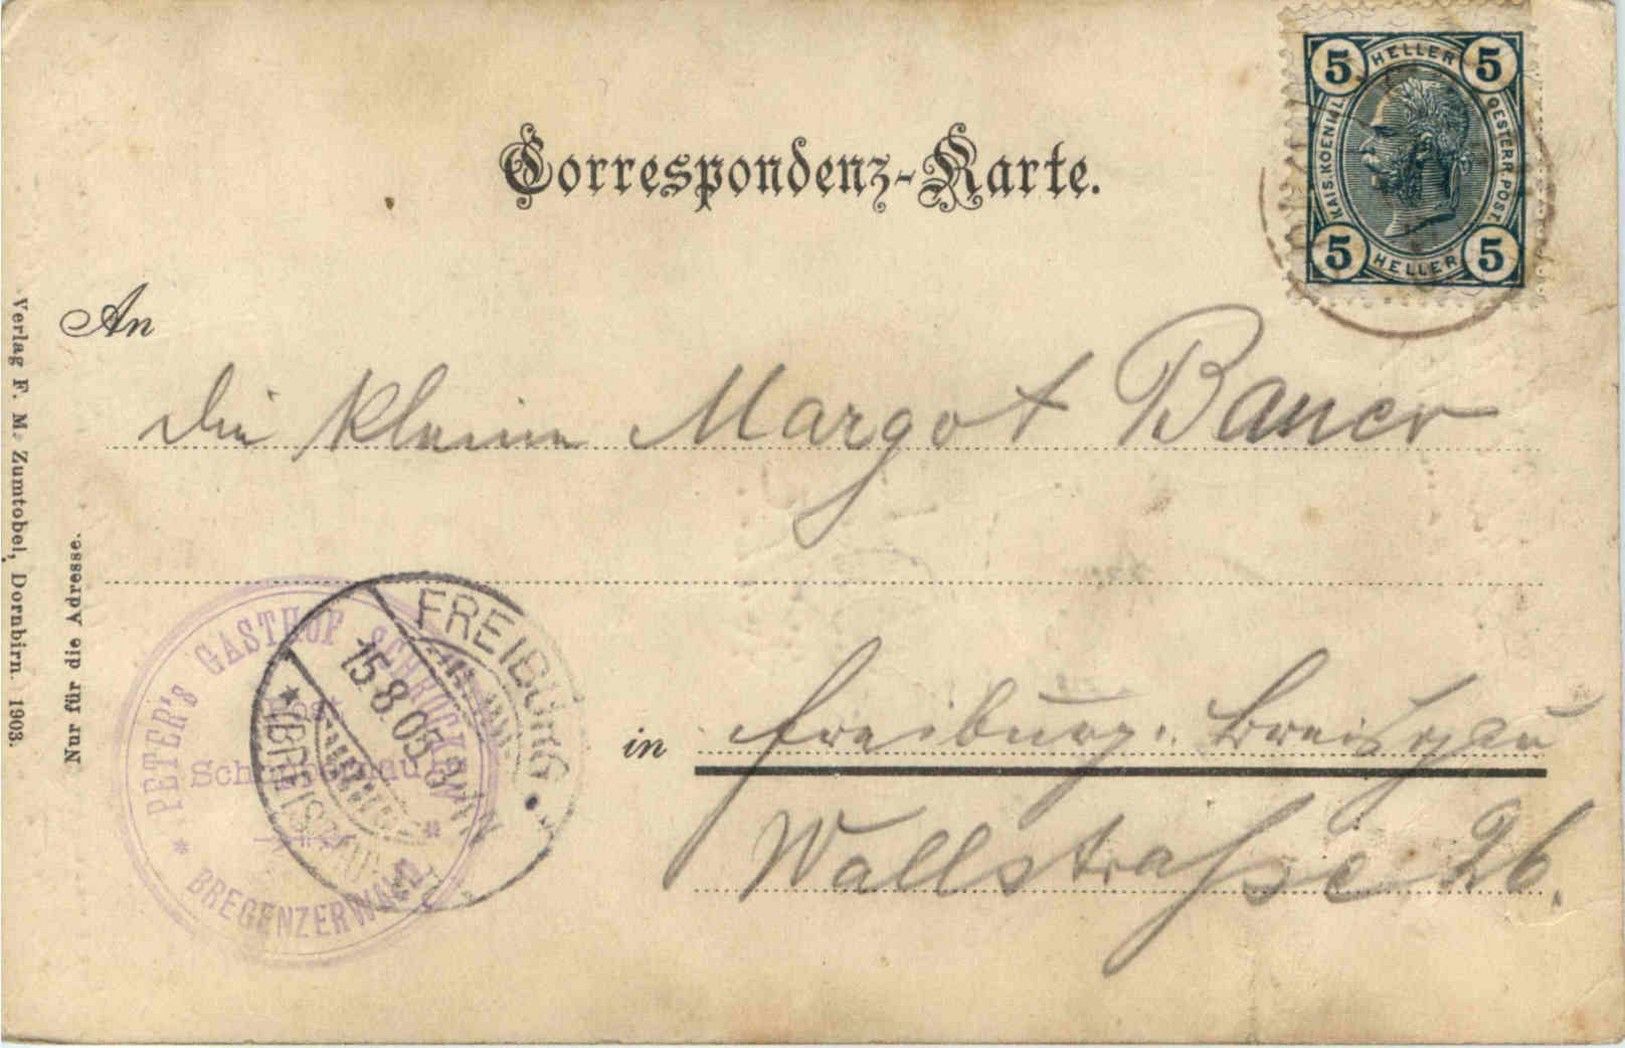 Correspondenz-Karte.
5 HELLER 5
KAIS. KOENIGL.
OESTERR. POST.
5 HELLER 5
An
die kleine Margot Bauer
in Freiburg. Breisgau
Wallstraße 26.
PETER'S GASTHOF SCHRÖCKEN
* BREGENZERWALD
FREIBURG
15.8.05. 8-9N
* (BREISGAU)
Nur für die Adresse.
Verlag F. M. Zumtobel, Dornbirn. 1903.